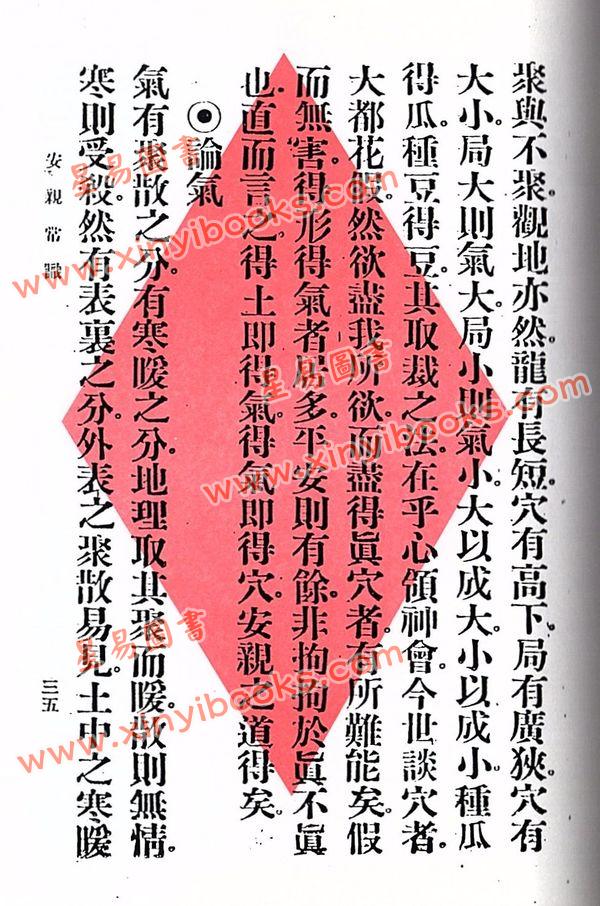 聚與不聚。觀地亦然。龍有長短。穴有高下。局有廣狹。穴有
大小。局大則氣大。局小則氣小。大以成大。小以成小。種瓜
得瓜。種豆得豆。其取裁之法。在乎心領神會。今世談穴者。
大都花假。然欲盡我所欲。而盡得眞穴者。有所難能矣。假
而無害。得形得氣者居多。平安則有餘。非拘拘於眞不眞
也。直而言之。得土即得氣。得氣即得穴。安親之道得矣。
◉論氣
氣有聚散之分。有寒暖之分。地理取其聚而暖。散則無情。
寒則受殺。然有表裏之分。外表之聚散易見。土中之寒暖
安親常識
三五
星易圖書
www.xinyibooks.com
星易圖書
www.xinyibooks.com
星易圖書
www.xinyibooks.com
星易圖書
www.xinyibooks.com